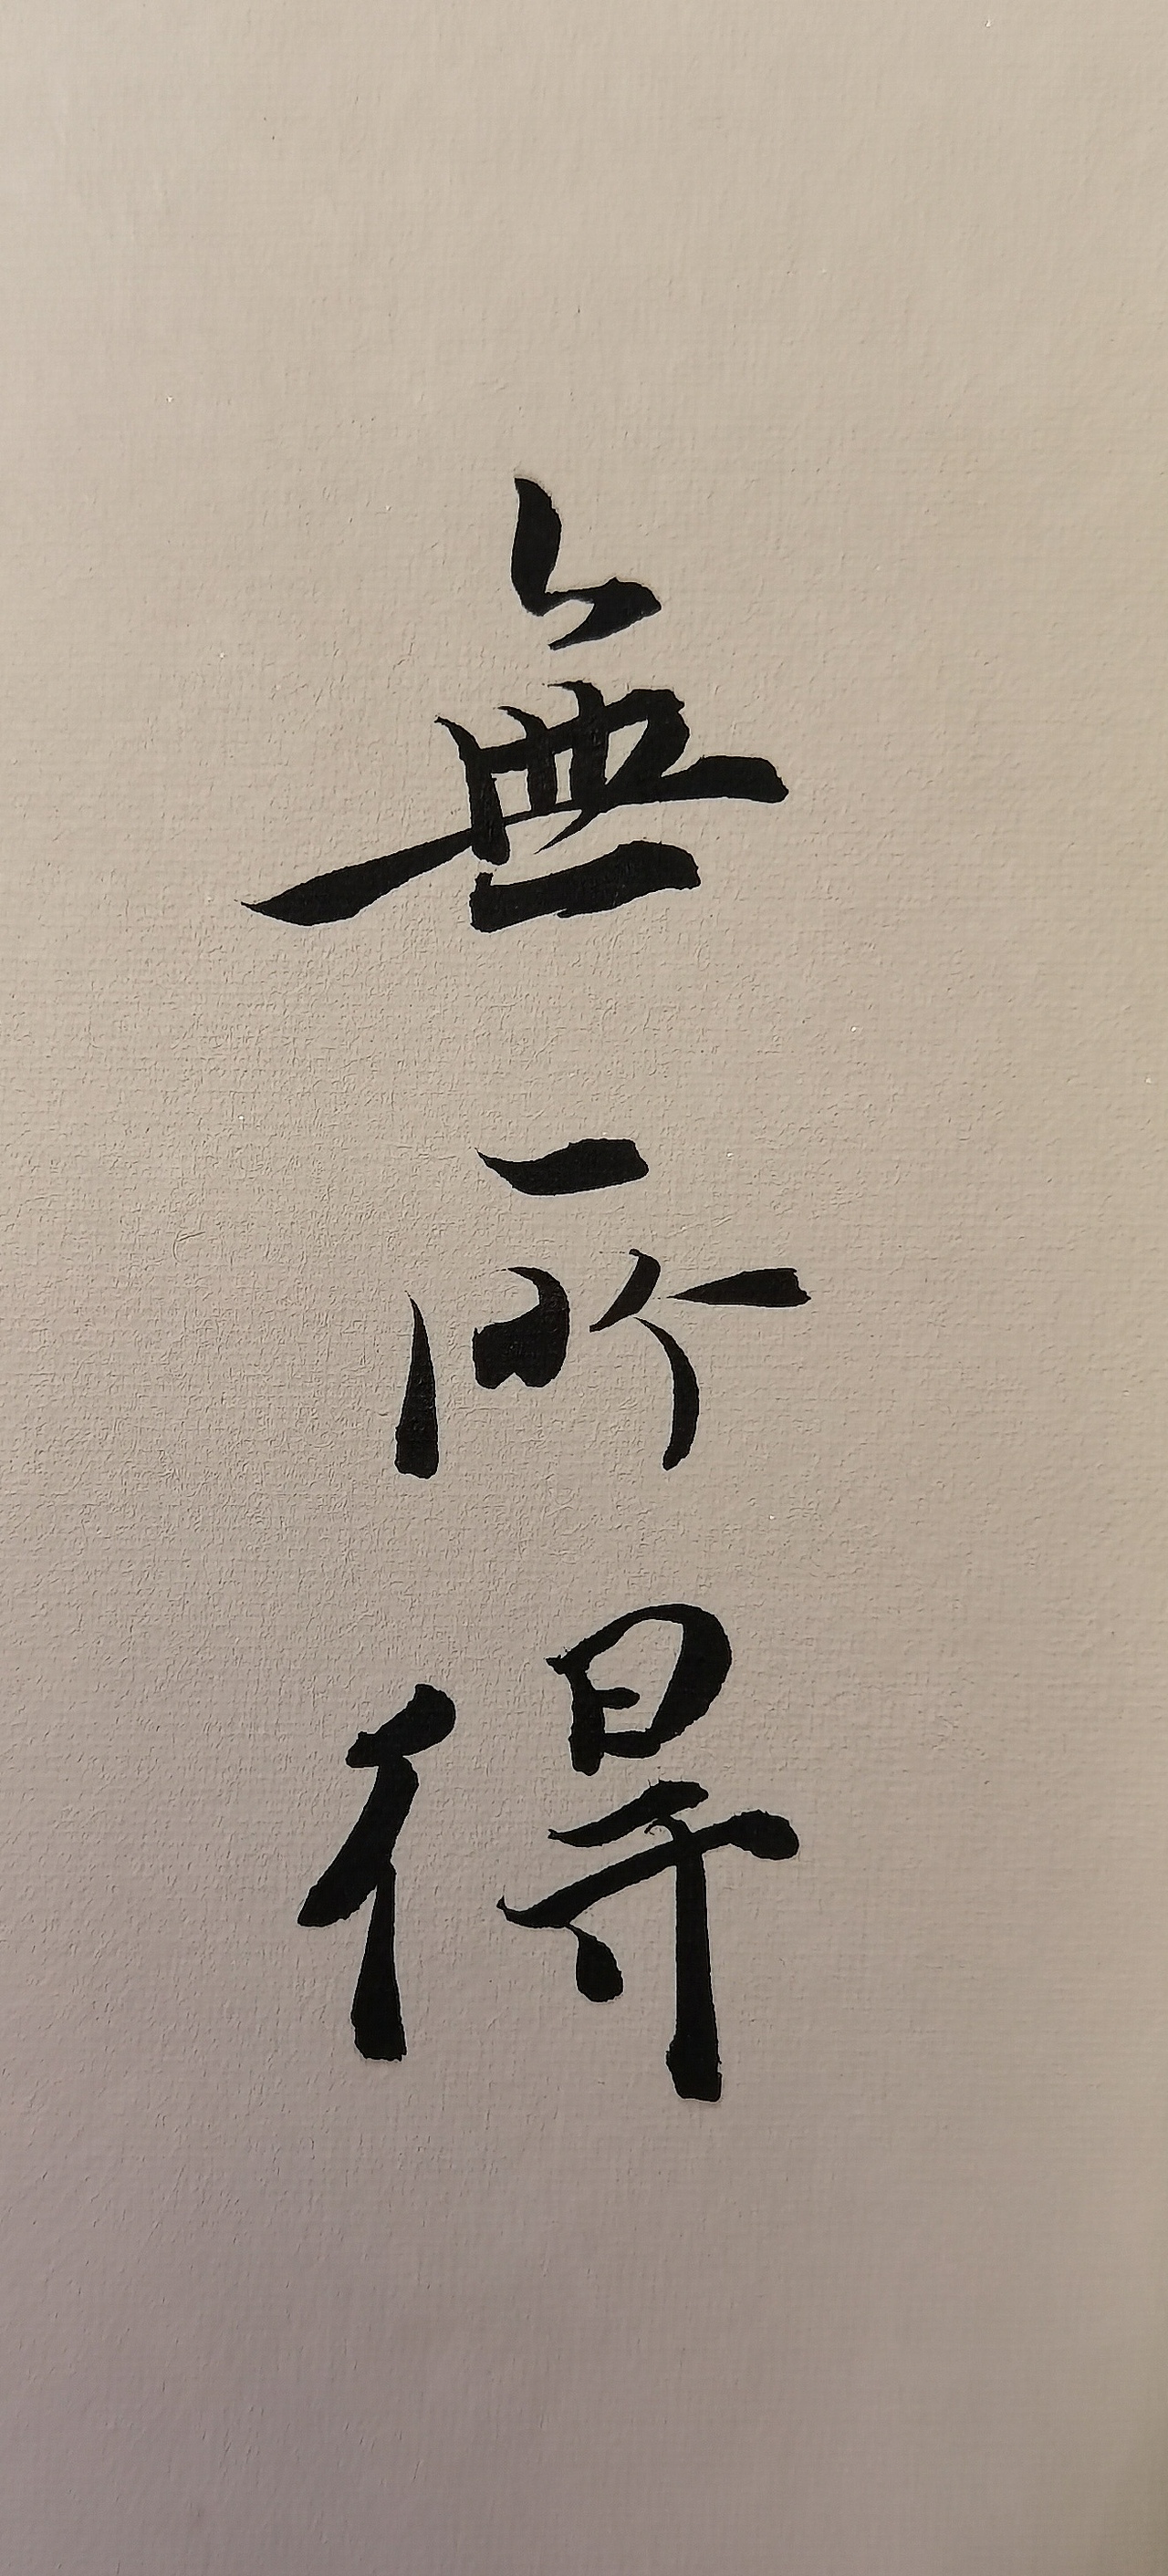 無所得